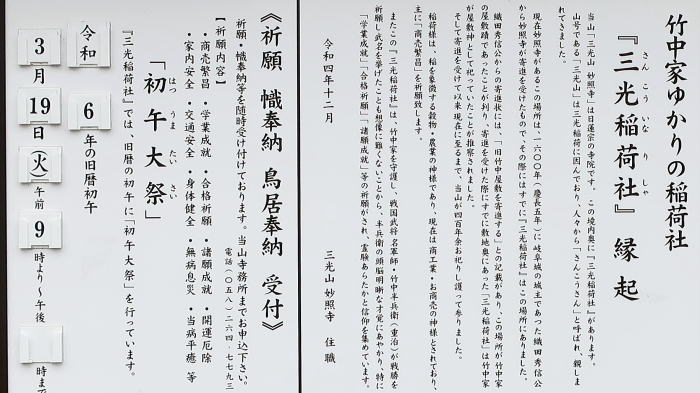 竹中家ゆかりの稲荷社
『三光稲荷社』縁起
さんこういなりしゃ
当山「三光山 妙照寺」は日蓮宗の寺院です。この境内奥に『三光稲荷社』があります。
山号である「三光山」は三光稲荷に因んでおり、人々から「さんこうさん」と呼ばれ、親しま
れてきました。
現在妙照寺があるこの場所は、一六〇〇年(慶長五年)に岐阜城の城主であった織田秀信公
から妙照寺が寄進を受けたもので、その際にはすでに『三光稲荷社』はこの場所にありました。
織田秀信公からの寄進状には、「旧竹中屋敷を寄進する」との記載があり、この場所が竹中家
の屋敷跡であったことが判り、寄進を受けた際にすでに敷地奥にあった『三光稲荷社』は竹中家
が屋敷神として祀っていたことが推察されました。
そして寄進を受けて以来現在に至るまで、当山が四百年余お祀りし護って参りました。
稲荷様は、稲を象徴する穀物・農業の神様であり、現在は商工業・お商売の神様とされており、
主に「商売繁昌」を祈願致します。
またこの『三光稲荷社』は、竹中家を守護し、戦国武将名軍師・竹中半兵衛(重治)が戦勝を
祈願し武名を挙げたことも想像に難くないことから、半兵衛の頭脳明晰な才覚にあやかり、特に
「学業成就」「合格祈願」「諸願成就」等の祈願がされ、霊験あらたかと信仰を集めています。
令和四年十二月
三光山 妙照寺 住職
《祈願 幟奉納 鳥居奉納 受付》
祈願・幟奉納等を随時受け付けております。当山寺務所までお申込下さい。
電話(〇五八)二六四-七七九三
【祈願内容】
・商売繁昌 ・学業成就 ・合格祈願 ・諸願成就 ・開運厄除
・家内安全 ・交通安全 ・身体健全 ・無病息災 ・当病平癒 等
「初午大祭」
はつうまたいさい
『三光稲荷社』では、旧暦の初午に「初午大祭」を行っています。
令和6年の旧暦初午
3月19日(火)午前9時より~午後 時まで